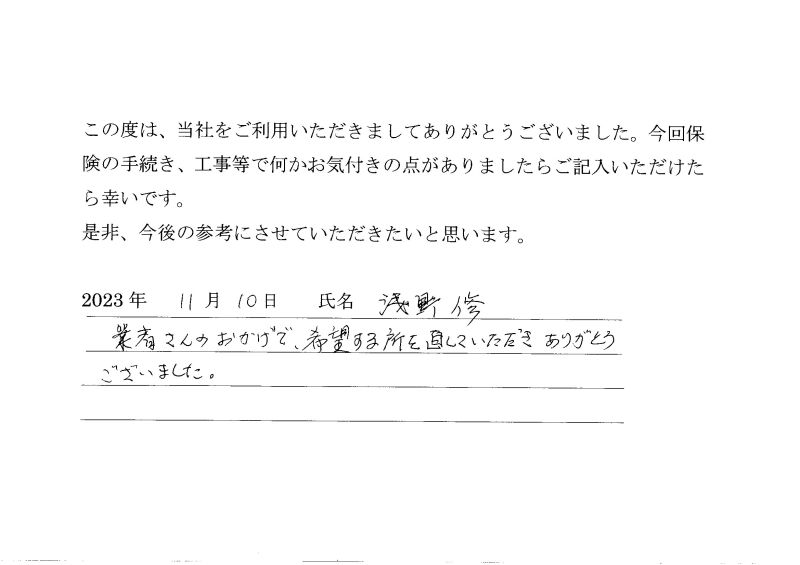 この度は、当社をご利用いただきましてありがとうございました。今回保
険の手続き、工事等で何かお気付きの点がありましたらご記入いただけた
ら幸いです。
是非、今後の参考にさせていただきたいと思います。
2023 年 11 月 10 日 氏名 浅野 修
業者さんのおかげで、希望する所を直していただき ありがとう
ございました。